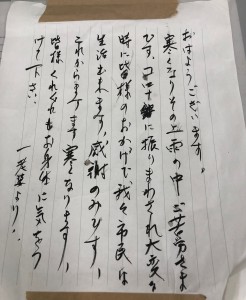 おはようございます。
寒くなりその上雨の中ご苦労さま
です、コロナ禍に振りまわされ大変な
時に皆様のおかげで我々市民は
生活出来ます、感謝のみです、
これからますます寒くなります、
皆様くれぐれもお身体に気をつ
けて下さい、
一老婆より!